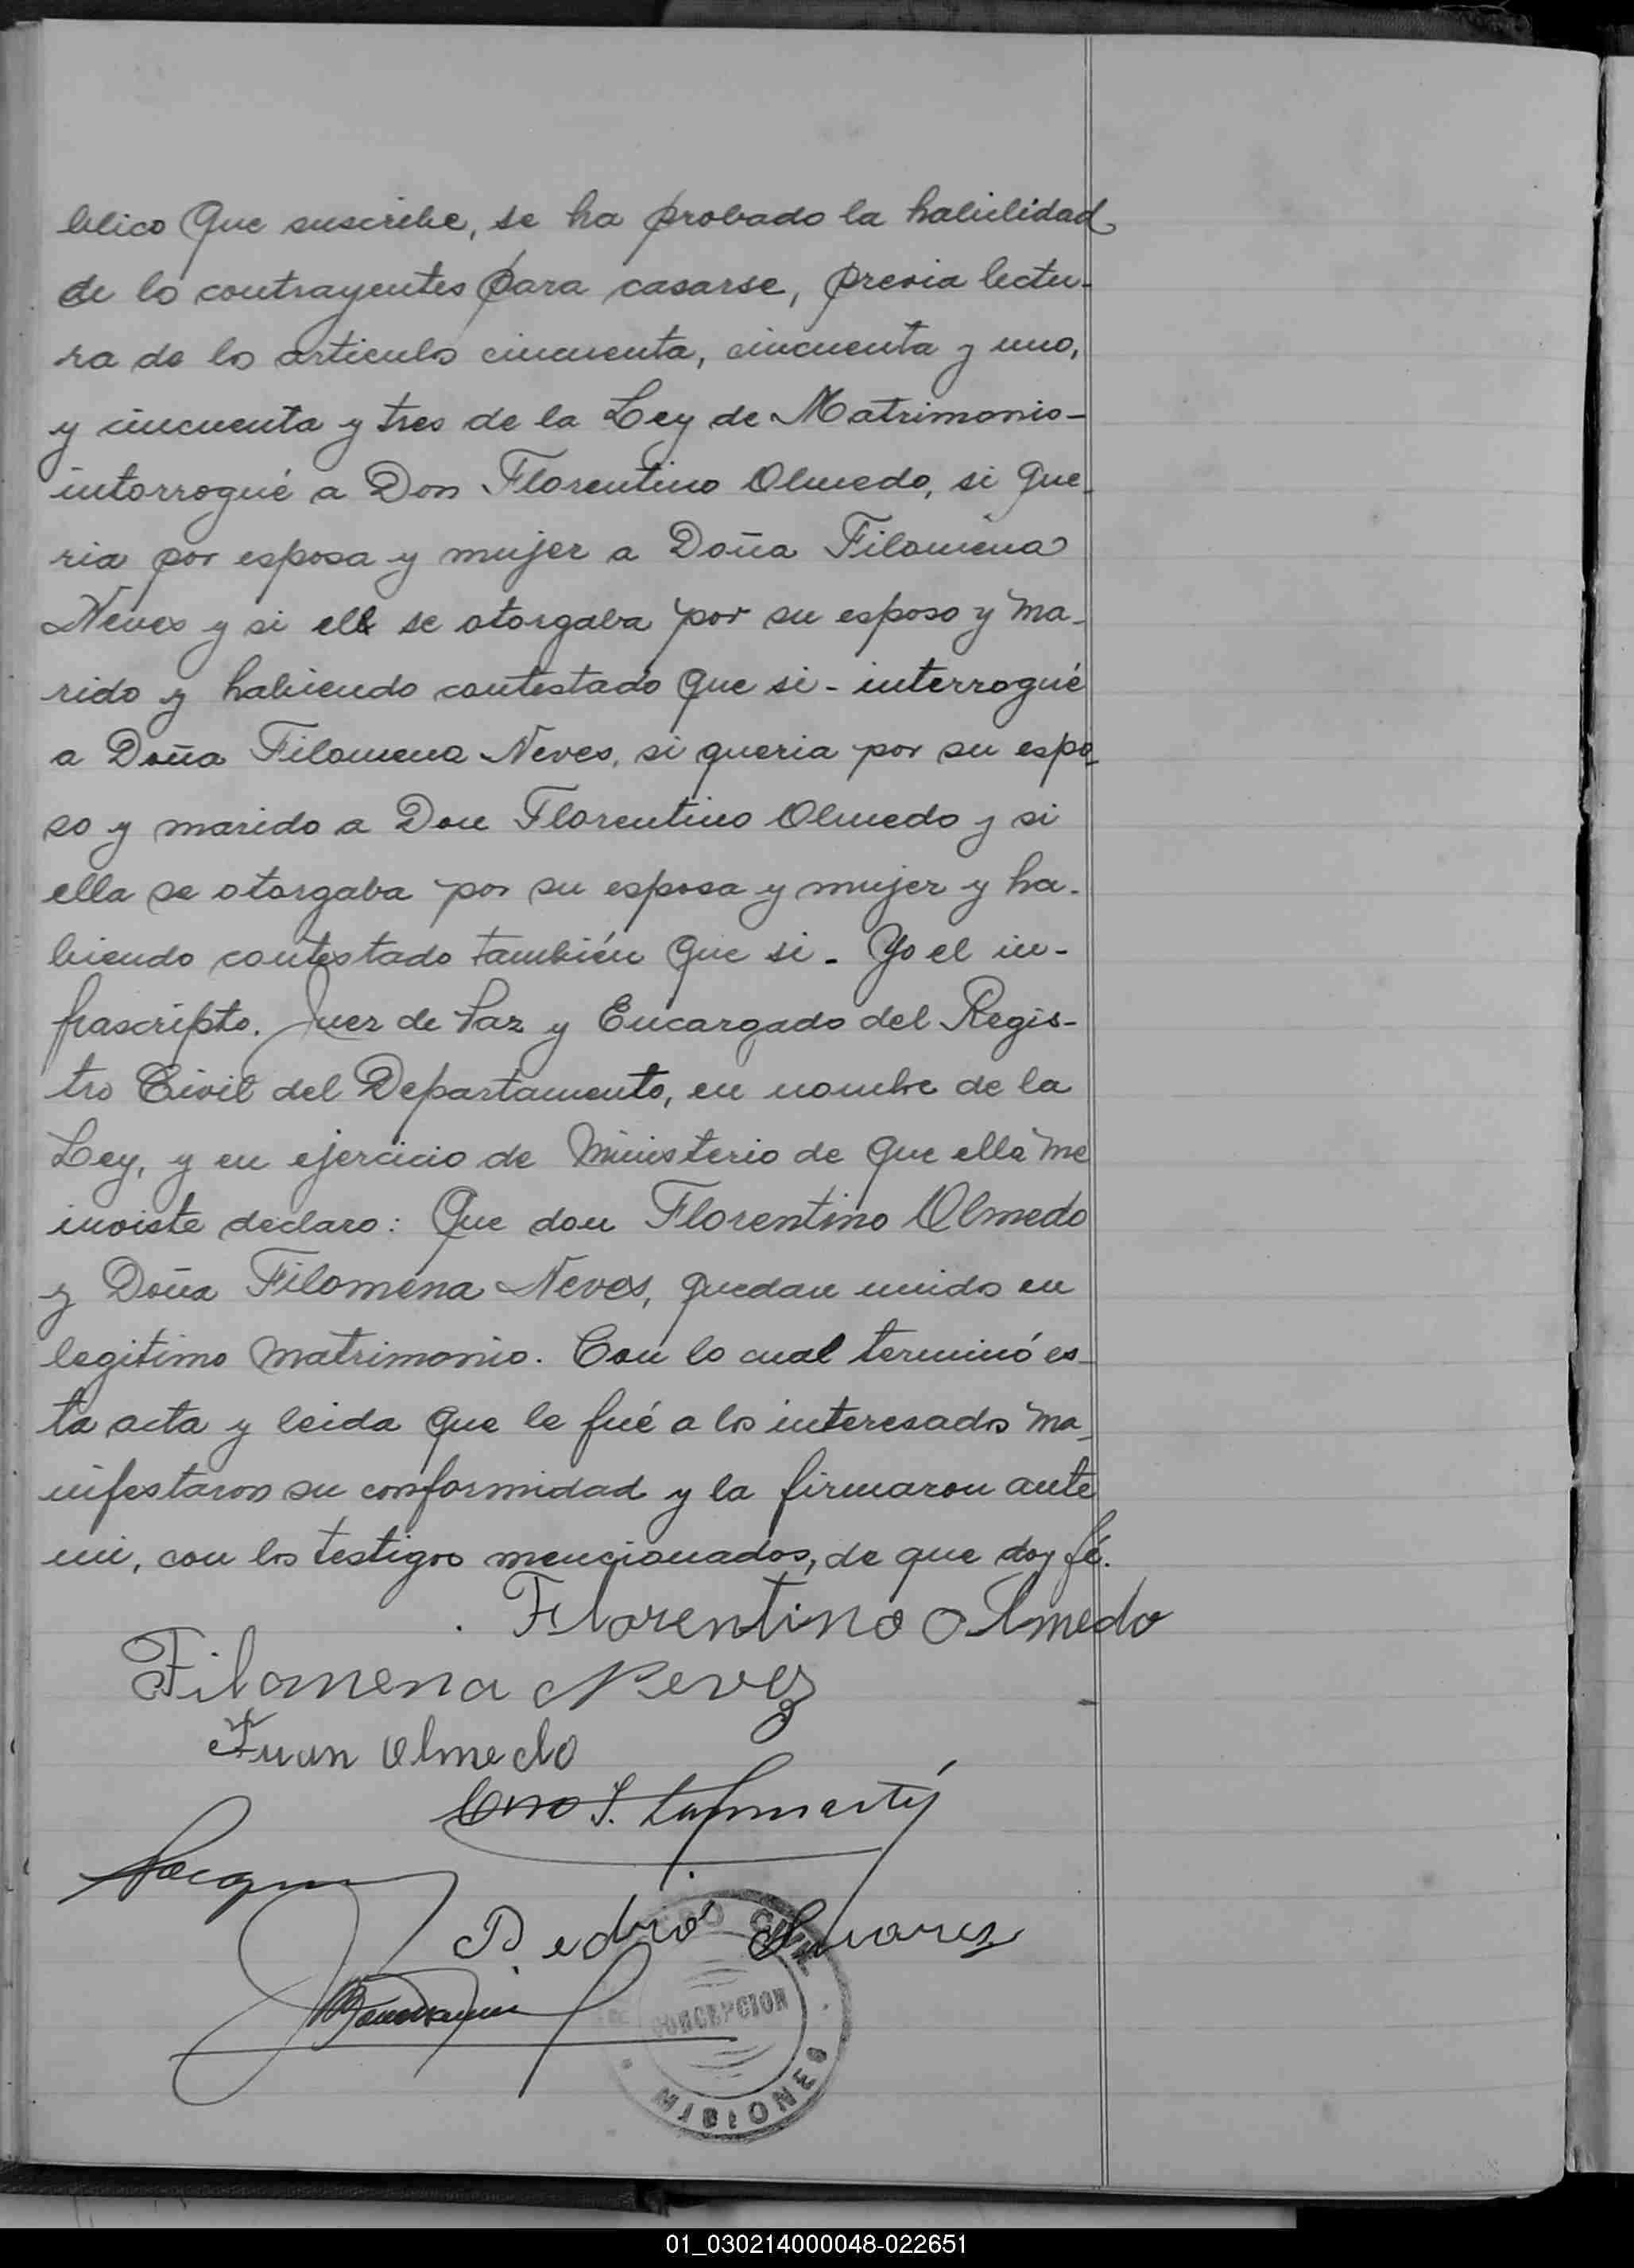 blico que suscribe, se ha probado la habilidad
de lo contrayentes para casarse, previa lectu-
ra de los articulos cincuenta, cincuenta y uno,
y cincuenta y tres de la Ley de Matrimonio-
intorrogué a Don Florentino Olmedo, si que-
ria por esposa y mujer a Doña Filomena
Neves y si ell se otorgaba por su esposo y ma-
rido y habiendo contestado que si - interrogué
a Doña Filomena Neves, si queria por su espo-
so y marido a Don Florentino Olmedo y si
ella se otorgaba por su esposa y mujer y ha-
biendo contestado también que si - Yo el in-
frascripto. Juez de Paz y Encargado del Regis-
tro Civil del Departamento, en nombre de la
Ley, y en ejercicio de Ministerio de que ella me
inviste declaro: Que don Florentino Olmedo
y Doña Filomena Neves, quedan unidos en
legitimo matrimonio. Con lo cual terminó es-
ta acta y leida que le fué a los interesados ma-
nifestaron su conformidad y la firmaron ante
mi, con los testigos mencionados, de que doy fé.
Florentino Olmedo
Filomena Nevez
Juan Olmedo
Pedro Suarez
CONCEPCION
MISIONES
01_030214000048-022651